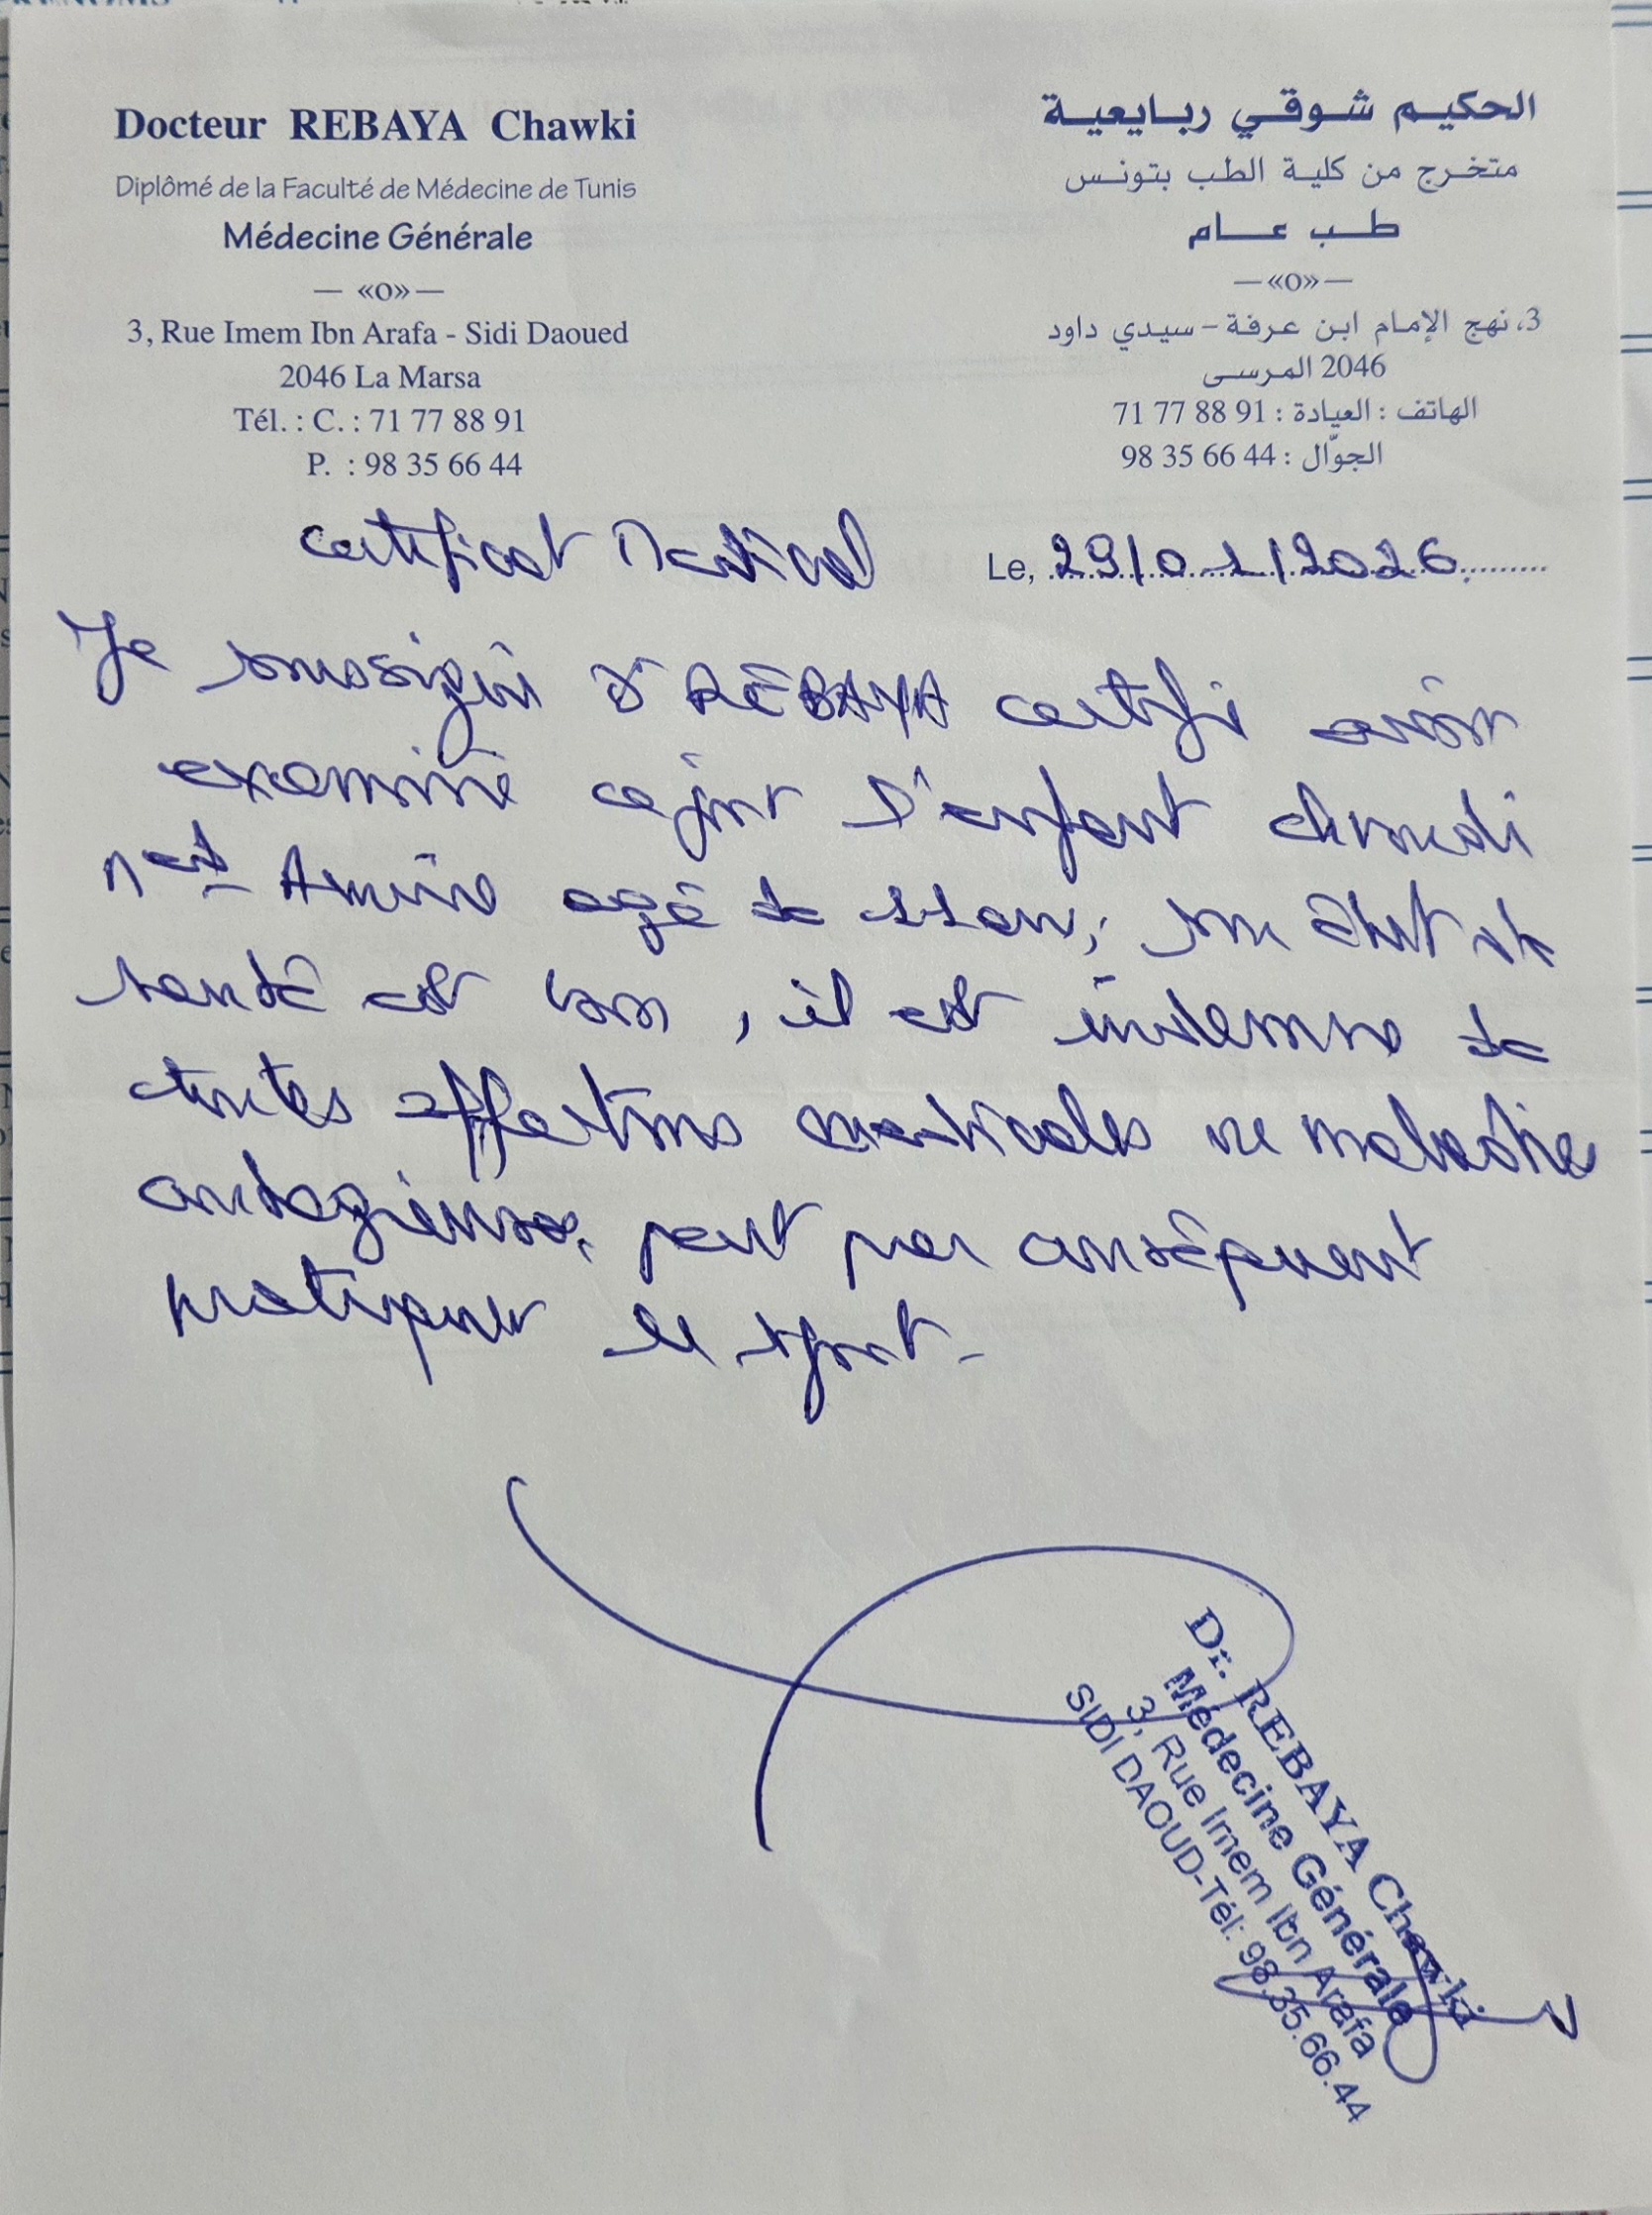 Docteur REBAYA Chawki
Diplômé de la Faculté de Médecine de Tunis
Médecine Générale
— «o» —
3, Rue Imem Ibn Arafa - Sidi Daoued
2046 La Marsa
Tél. : C. : 71 77 88 91
P. : 98 35 66 44
الحكيم شوقي ربايعية
متخرج من كلية الطب بتونس
طب عام
— «o» —
3، نهج الإمام ابن عرفة - سيدي داود
2046 المرسى
الهاتف : العيادة : 71 77 88 91
الجوّال : 98 35 66 44
Certificat Médical
Le, 29/01/2026
Je soussigné Dr REBAYA certifie avoir
examiné ce jour l'enfant
Amine agé de 11 ans, son état de
santé est bon, il est indemne de
toutes affections médicales ou maladie
contagieuse, peut par conséquent
pratiquer le sport.
Dr. REBAYA Chawki
Médecine Générale
3, Rue Imem Ibn Arafa
SIDI DAOUD-Tél: 98.35.66.44